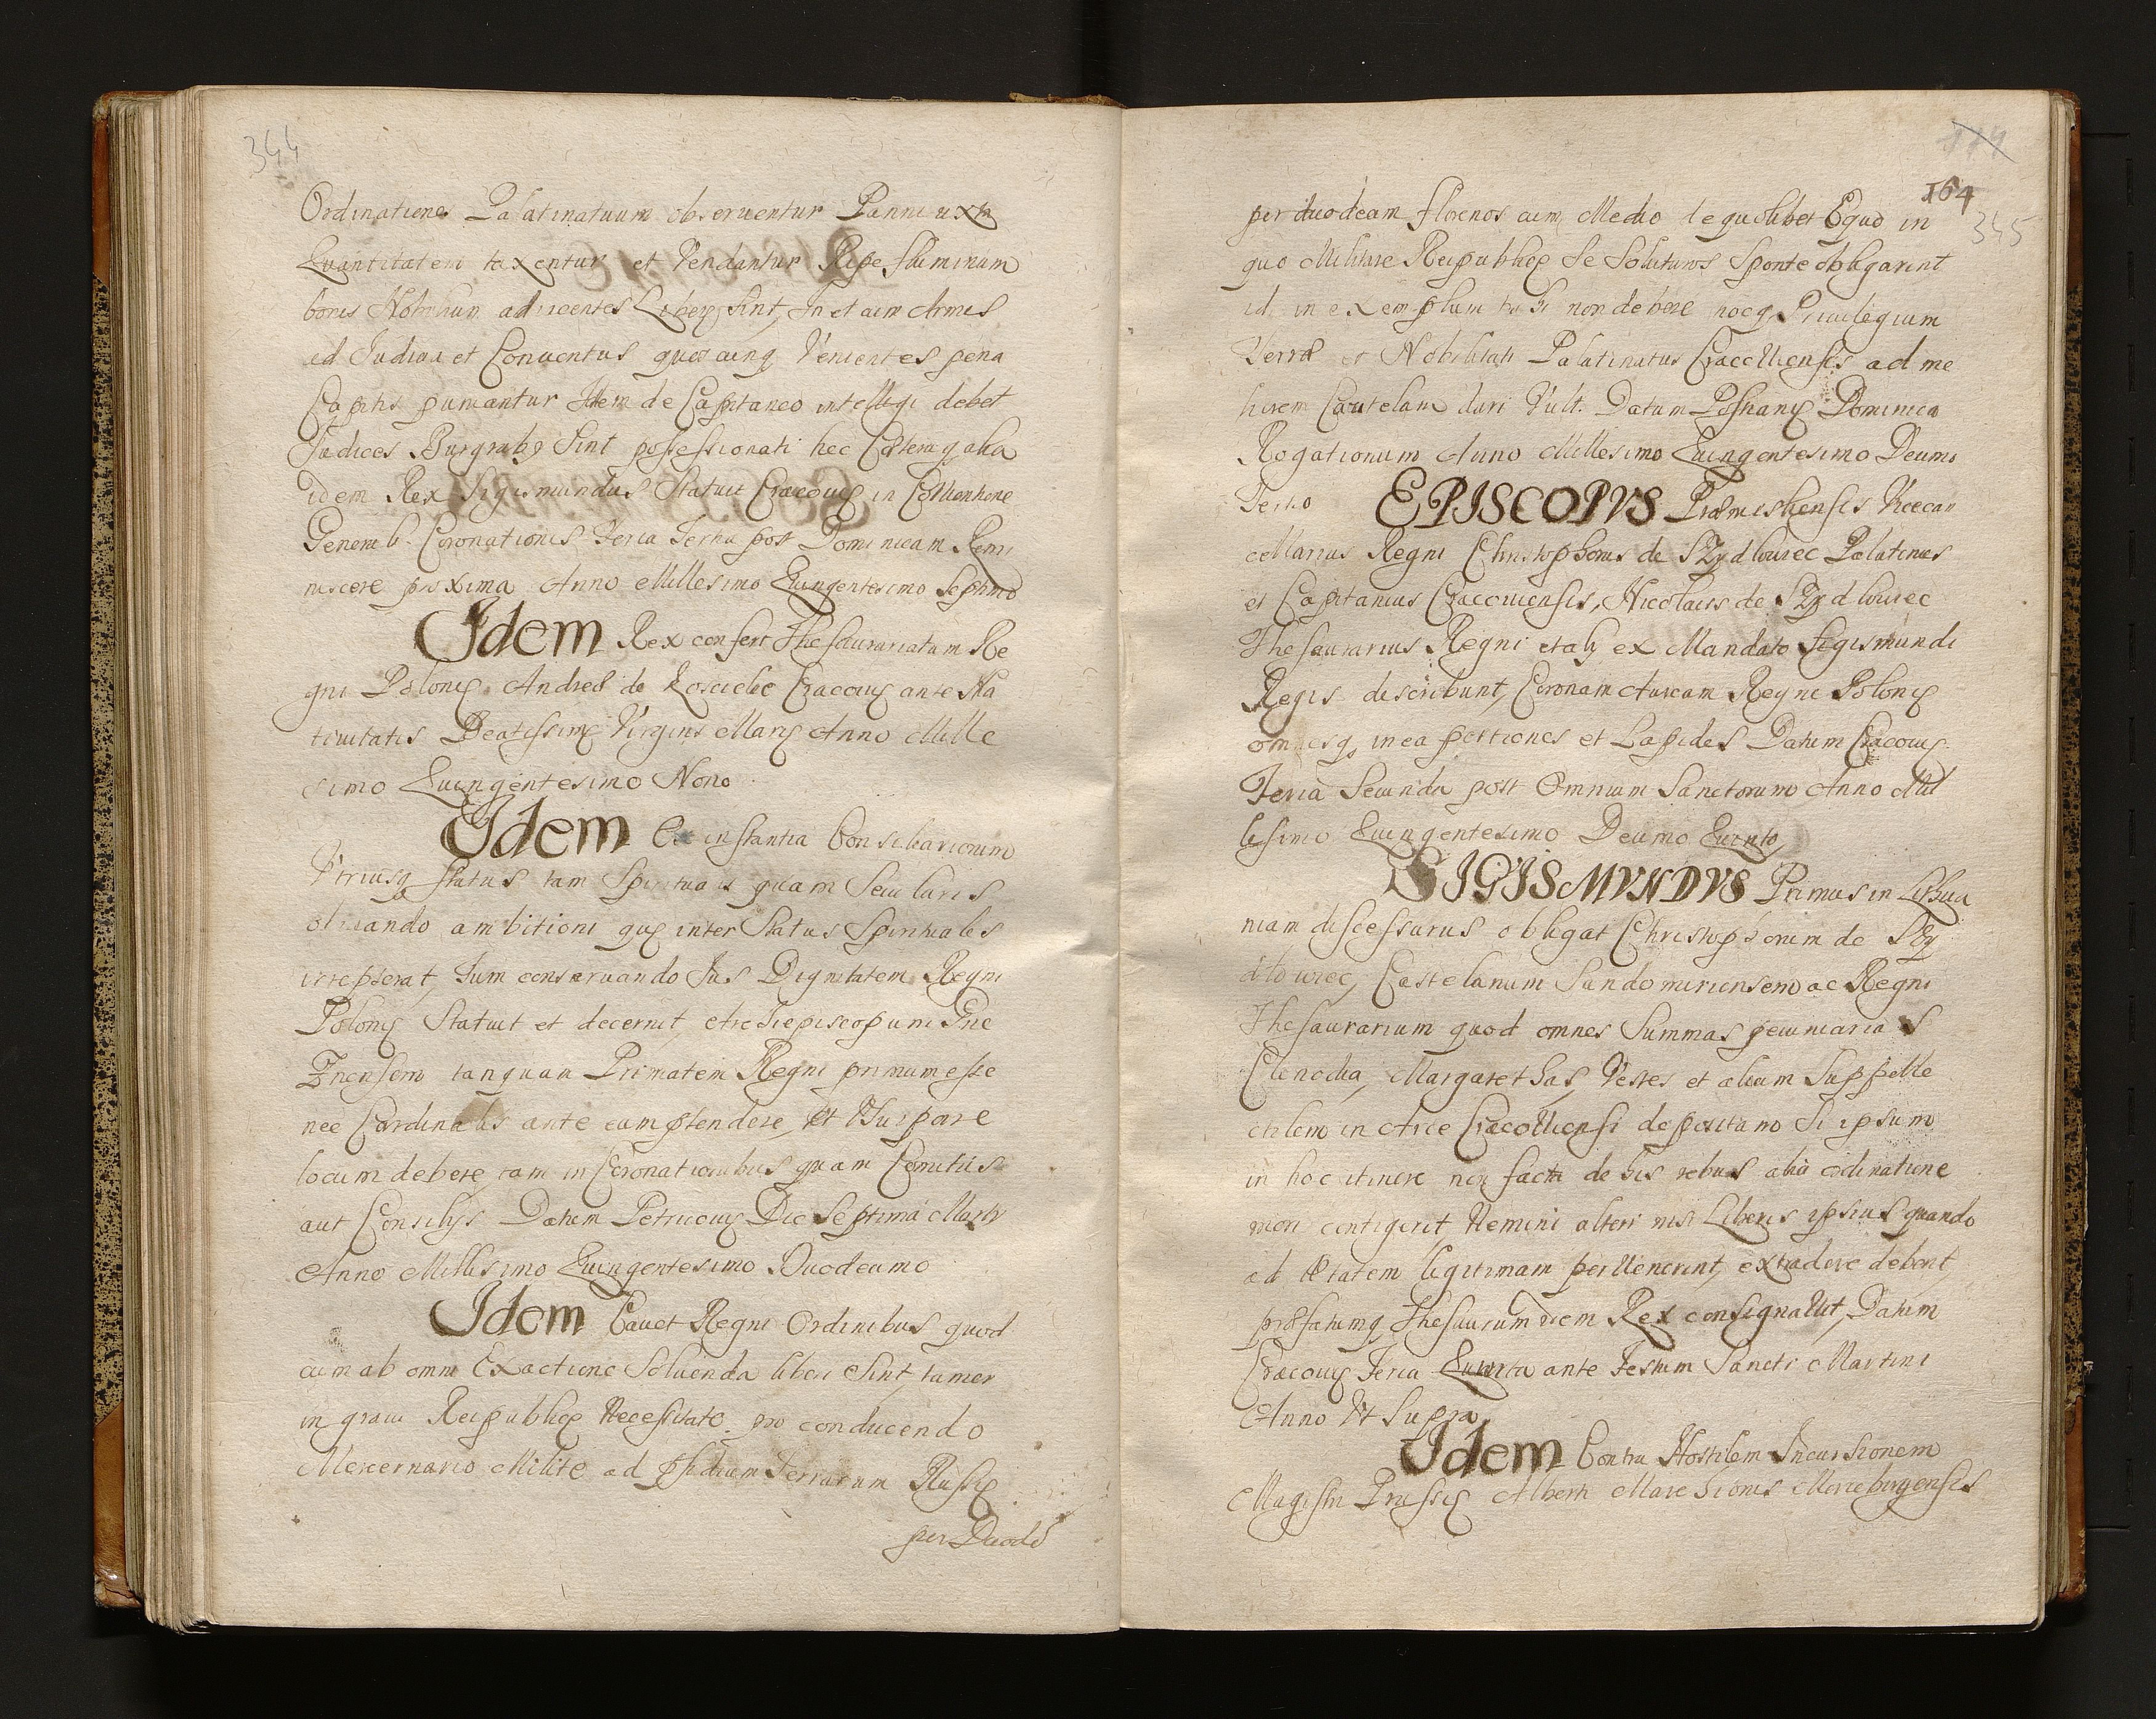 344
Ordinationes Palatinatuum observentur Panni uxta
Quantitatem taxentur et Vendantur Ripe fluminum
bonis Nobilium adiicentes Liberę sint, In et cum Armis
ad Iudicia et Conventus quęcunq Venientes pena
Capitis puniantur Idem de Capitaneo intelligi debet
Iudices Burgraby sint possessionati hec Ceteraq alia
idem Rex Sigismundus Statuit Cracovię in Conventione
Generali Coronationis Feria Tertia post Dominicam Remi
niscere proxima Anno Millesimo Quingentesimo Septimo
Idem Rex confert Thesaurariatum Re
gni Polonię Andreæ de Koscielec Cracovię ante Na
tivitatis Beatissimę Virginis Marię Anno Mille
simo Quingentesimo Nono
Idem Ex instantia Consiliariorum
Vtriusq status tam Spiritualis quam Secularis
obviando ambitioni quę inter Status Spirituales
irrepserat, Tum conservando Ius Dignitatem Regni
Polonię Statuit et decernit, Archiepiscopum Gne
znensem tanquam Primatem Regni primum esse
nec Cardinalis ante eum ptendere, et Vsurpare
locum debere tam in Coronationibus quam Comitiis
aut Consilijs Datum Petricovię Die Septima Martij
Anno Millesimo Quingentesimo Duodecimo
Idem Cavet Regni Ordinibus quod
cum ab omni Exactione Solvenda liberi Sint, tamen
in gravi Reipublicę Necessitate pro conducendo
Mercernario Milite ad psidium Terrarum Russię
per Duode
164
345
per duodecim florenos cum Medio de quolibet Equo in
quo Militare Reipublicę se Soluturos Sponte obligarint
id in exemplum trahi non debere hocq Privilegium
Terræ et Nobilitati Palatinatus Cracoviensis ad me
liorem Cautelam dari Vult. Datum Posnanię Dominica
Rogationum Anno Millesimo Quingentesimo Decimo
Tertio EPISCOPVS Præmisliensis Vicecan
cellarius Regni Christophorus de Szydlowiec Palatinus
et Capitaneus Cracoviensis, Nicolaus de Szydlowiec
Thesaurarius Regni et alij ex Mandato Sigismundi
Regis describunt, Coronam Auream Regni Polonię
omnesq, in ea portiones et Lapides Datum Cracovię
Feria Secunda post Omnium Sanctorum Anno Mil
lesimo Quingentesimo Decimo Quinto,
SIGISMVNDVS Primus in Lithua
niam discessurus obligat Christophorum de Szy
dlowiec, Castelanum Sandomiriensem ac Regni
Thesaurarium quod omnes Summas pecuniarias
Clenodia, Margarethas, Vestes et aliam Suppelle
ctilem in Arce Cracoviensi depositam Si ipsum
in hoc itinere non facta de his rebus alia ordinatione
mori contigerit Nemini alteri nisi Liberis ipsius quando
ad ætatem legitimam perVenerint, extradere debent,
præfatumq Thesaurum idem Rex consignaVit, Datum
Cracovię Feria Quinta ante Festum Sancti Martini
Anno Vt Supra,
Idem Contra Hostilem Incursionem
Magistri Prussię Alberti Marchionis Merseburgensis